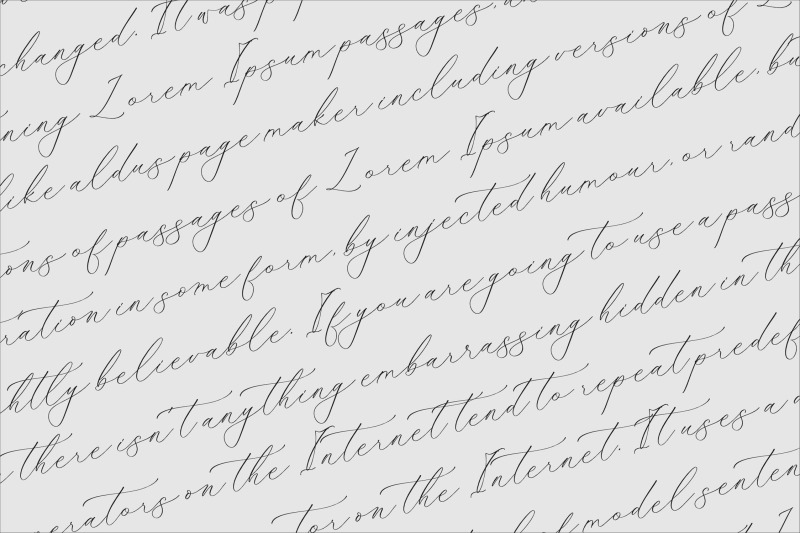 changed. It was p
ning Lorem Ipsum passages, an
like aldus page maker including versions of L
ons of passages of Lorem Ipsum available, bu
ration in some form, by injected humour, or rand
htly believable. If you are going to use a pass
there isn't anything embarrassing hidden in th
erators on the Internet tend to repeat predef
tor on the Internet. It uses a d
of model senten